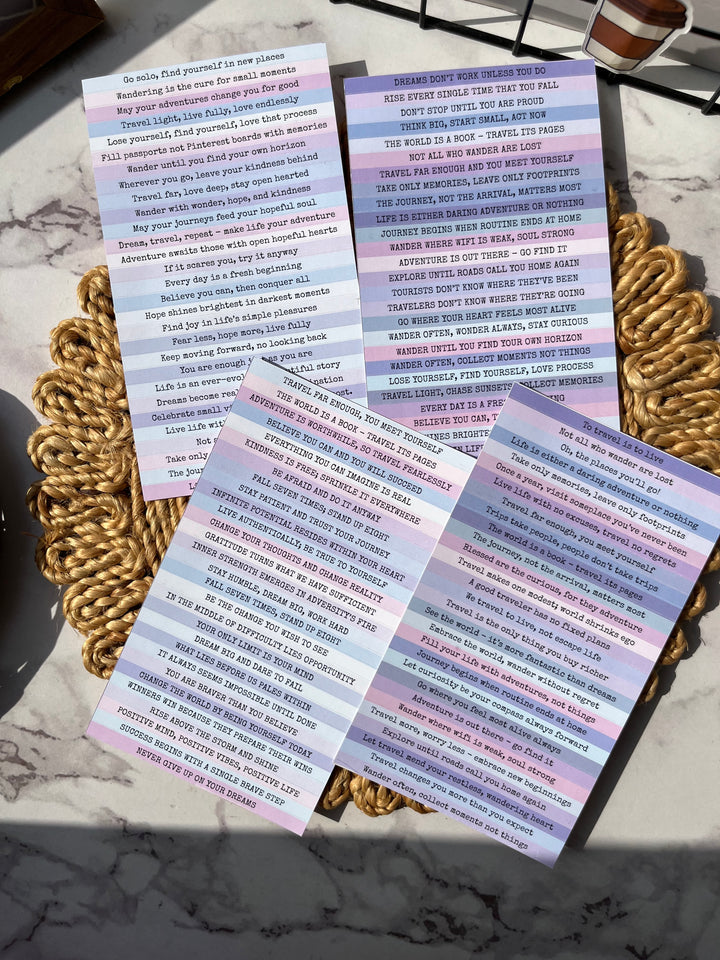 Go solo, find yourself in new places
Wandering is the cure for small moments
May your adventures change you for good
Travel light, live fully, love endlessly
Lose yourself, find yourself, love that process
Fill passports not Pinterest boards with memories
Wander until you find your own horizon
Wherever you go, leave your kindness behind
Travel far, love deep, stay open hearted
Wander with wonder, hope, and kindness
May your journeys feed your hopeful soul
Dream, travel, repeat - make life your adventure
Adventure awaits those with open hopeful hearts
If it scares you, try it anyway
Every day is a fresh beginning
Believe you can, then conquer all
Hope shines brightest in darkest moments
Find joy in life's simple pleasures
Fear less, hope more, live fully
Keep moving forward, no looking back
You are enough as you are
Life is an ever-evo tiful story
Dreams become rea ination
Celebrate small v most
Live life with
Not
Take only
The jour
L
DREAMS DON'T WORK UNLESS YOU DO
RISE EVERY SINGLE TIME THAT YOU FALL
DON'T STOP UNTIL YOU ARE PROUD
THINK BIG, START SMALL, ACT NOW
THE WORLD IS A BOOK - TRAVEL ITS PAGES
NOT ALL WHO WANDER ARE LOST
TRAVEL FAR ENOUGH AND YOU MEET YOURSELF
TAKE ONLY MEMORIES, LEAVE ONLY FOOTPRINTS
THE JOURNEY, NOT THE ARRIVAL, MATTERS MOST
LIFE IS EITHER DARING ADVENTURE OR NOTHING
JOURNEY BEGINS WHEN ROUTINE ENDS AT HOME
WANDER WHERE WIFI IS WEAK, SOUL STRONG
ADVENTURE IS OUT THERE - GO FIND IT
EXPLORE UNTIL ROADS CALL YOU HOME AGAIN
TOURISTS DON'T KNOW WHERE THEY'VE BEEN
TRAVELERS DON'T KNOW WHERE THEY'RE GOING
GO WHERE YOUR HEART FEELS MOST ALIVE
WANDER OFTEN, WONDER ALWAYS, STAY CURIOUS
WANDER UNTIL YOU FIND YOUR OWN HORIZON
WANDER OFTEN, COLLECT MOMENTS NOT THINGS
LOSE YOURSELF, FIND YOURSELF, LOVE PROCESS
TRAVEL LIGHT, CHASE SUNSETS, COLLECT MEMORIES
EVERY DAY IS A FRES NING
BELIEVE YOU CAN, T
NES BRIGHTE
TRAVEL FAR ENOUGH, YOU MEET YOURSELF
THE WORLD IS A BOOK - TRAVEL ITS PAGES
ADVENTURE IS WORTHWHILE, SO TRAVEL FEARLESSLY
BELIEVE YOU CAN AND YOU WILL SUCCEED
EVERYTHING YOU CAN IMAGINE IS REAL
KINDNESS IS FREE; SPRINKLE IT EVERYWHERE
BE AFRAID AND DO IT ANYWAY
FALL SEVEN TIMES, STAND UP EIGHT
STAY PATIENT AND TRUST YOUR JOURNEY
INFINITE POTENTIAL RESIDES WITHIN YOUR HEART
LIVE AUTHENTICALLY, BE TRUE TO YOURSELF
CHANGE YOUR THOUGHTS AND CHANGE REALITY
GRATITUDE TURNS WHAT WE HAVE SUFFICIENT
INNER STRENGTH EMERGES IN ADVERSITY'S FIRE
STAY HUMBLE, DREAM BIG, WORK HARD
FALL SEVEN TIMES, STAND UP EIGHT
BE THE CHANGE YOU WISH TO SEE
IN THE MIDDLE OF DIFFICULTY LIES OPPORTUNITY
YOUR ONLY LIMIT IS YOUR MIND
DREAM BIG AND DARE TO FAIL
WHAT LIES BEFORE US PALES WITHIN
IT ALWAYS SEEMS IMPOSSIBLE UNTIL DONE
YOU ARE BRAVER THAN YOU BELIEVE
CHANGE THE WORLD BY BEING YOURSELF TODAY
WINNERS WIN BECAUSE THEY PREPARE THEIR WINS
RISE ABOVE THE STORM AND SHINE
POSITIVE MIND, POSITIVE VIBES, POSITIVE LIFE
SUCCESS BEGINS WITH A SINGLE BRAVE STEP
NEVER GIVE UP ON YOUR DREAMS
To travel is to live
Not all who wander are lost
Oh, the places you'll go!
Life is either a daring adventure or nothing
Take only memories, leave only footprints
Once a year, visit someplace you've never been
Live life with no excuses, travel no regrets
Travel far enough, you meet yourself
Trips take people; people don't take trips
The world is a book - travel its pages
The journey, not the arrival, matters most
Blessed are the curious, for they adventure
Travel makes one modest; world shrinks ego
A good traveler has no fixed plans
We travel to live, not escape life
Travel is the only thing you buy richer
See the world - it's more fantastic than dreams
Embrace the world, wander without regret
Fill your life with adventures, not things
Journey begins when routine ends at home
Let curiosity be your compass always forward
Go where you feel most alive always
Adventure is out there - go find it
Wander where wifi is weak, soul strong
Travel more, worry less - embrace new beginnings
Explore until roads call you home again
Let travel mend your restless, wandering heart
Travel changes you more than you expect
Wander often, collect moments not things